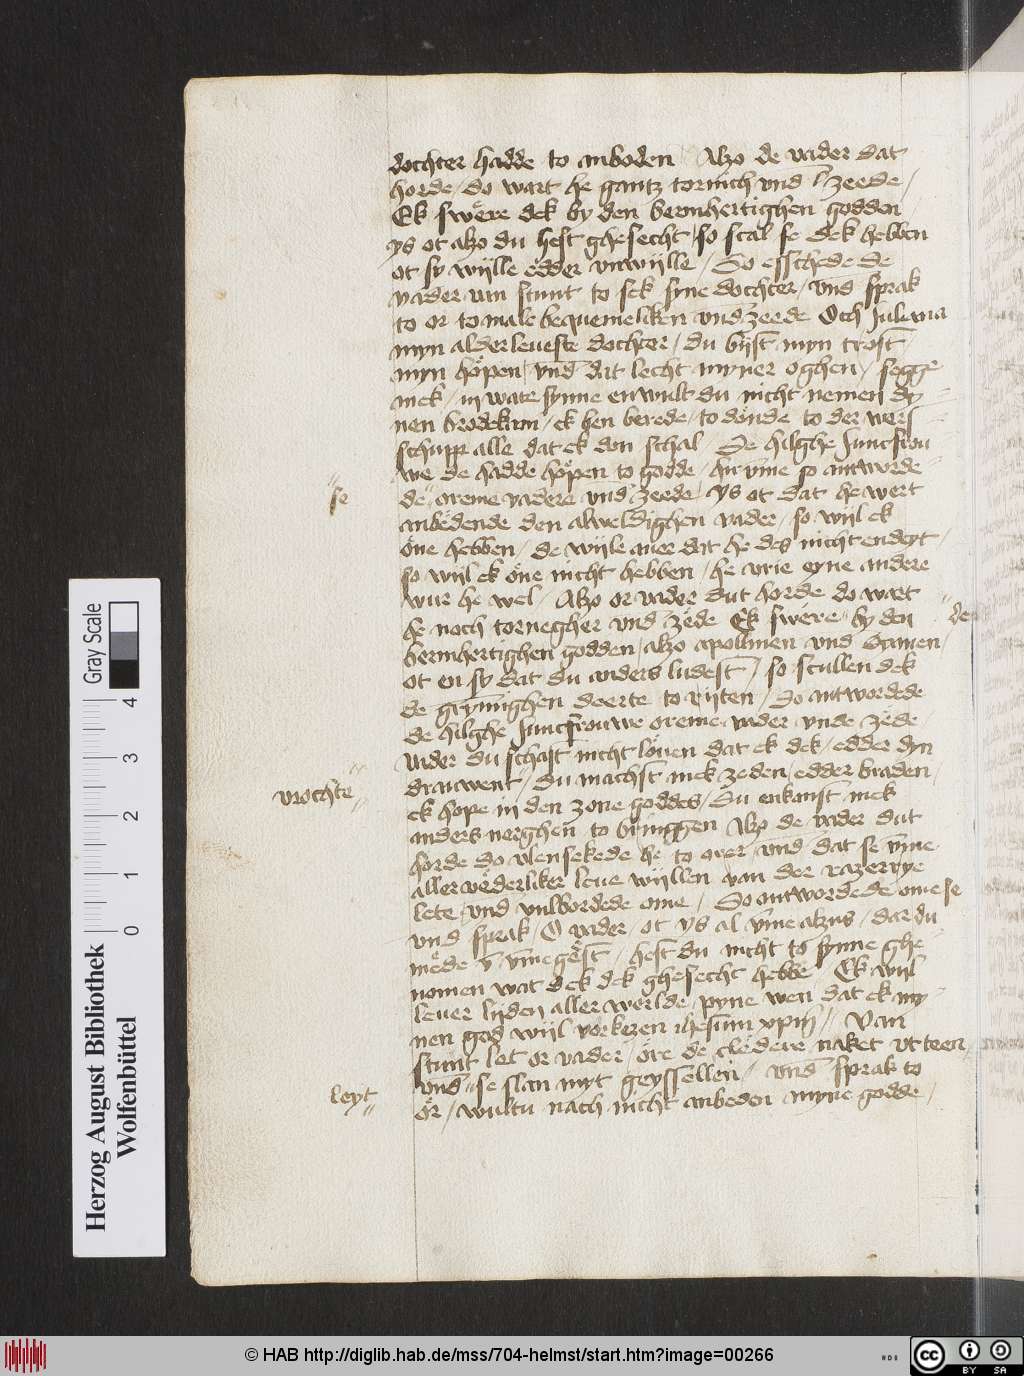 dochter hadde to anboden Alzo de vader dat
horde / do wart he gantz tornich vnd zeede /
Ek swere dek by den bermhertighen godden
ys ot alzo du hest ghesecht / so scal se dek hebben
ot sy wylle edder vnwylle / Do esschede de
vader van stunt to sek syne dochter / vnd sprak
to or to male bequemeliken vnd zeede Och Juliana
myn alderleueste dochter / du byst myn trost
myn höpen / vnd dat lecht myner oghen / segge
mek / in wate synne en wult du nicht nemen dy
nen brodekam / ek ben berede / to donde to der wert
schupp alle dat ek don schal De hilghe Juncfrou
we de hadde höpen to godde / hir vme so antworde
se
de oreme vadere vnd zeede ys ot dat he wert
anbedende den alweldighen vader / so wyl ek
öne hebben / de wyle auer dat he des nicht en deyt /
so wyl ek öne nicht hebben / he vrie eyne andere
wur he wel / Alzo or vader dut horde do wart
he noch tornegher vnd zede Ek swere by den
bermhertighen godden / alzo apollinen vnd Dianen /
ot en sy dat du anders ludest / so scullen dek
de grymmighen deerte to ryten / Do antwordede
de hilghe Juncfrouwe oreme vader vnde zede /
vader du schast nicht löuen dat ek dek / edder dyn
drauwent / du machst mek zeden / edder braden /
vrochte
ek hope in den zone goddes / Du enkanst mek
anders nerghen to bringgen Alzo de vader dut
horde do vlensekede he to orer / vnd dat se vme
aller vederliker leue wyllen van der razerrye
lete / vnd vulbordede ome / Do antwordede ome se
vnd sprak / O vader / ot ys al vme alzus / dar du
mede vmegest / hest du nicht to synne ghe
nomen wat ek dek ghesecht hebbe Ek wyl
leuer lyden aller werlde pyne wen dat ek my
nen god wyl vorkezen ihesum xpm / Van
stunt let or vader / ore de cledere naket vt teen /
vnd se slan myt geyssellen / vnd sprak to
leyt
ör / wultu nach nicht anbeden myne godde /
Gray Scale
4
3
2
1
0
Herzog August Bibliothek
Wolfenbüttel
© HAB http://diglib.hab.de/mss/704-helmst/start.htm?image=00266
HAB
cc
BY SA